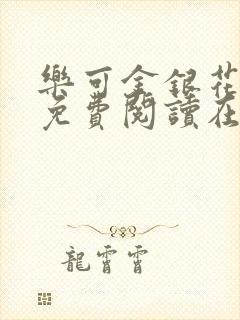 樂可金銀花
免費閱讀在
龍霄霄